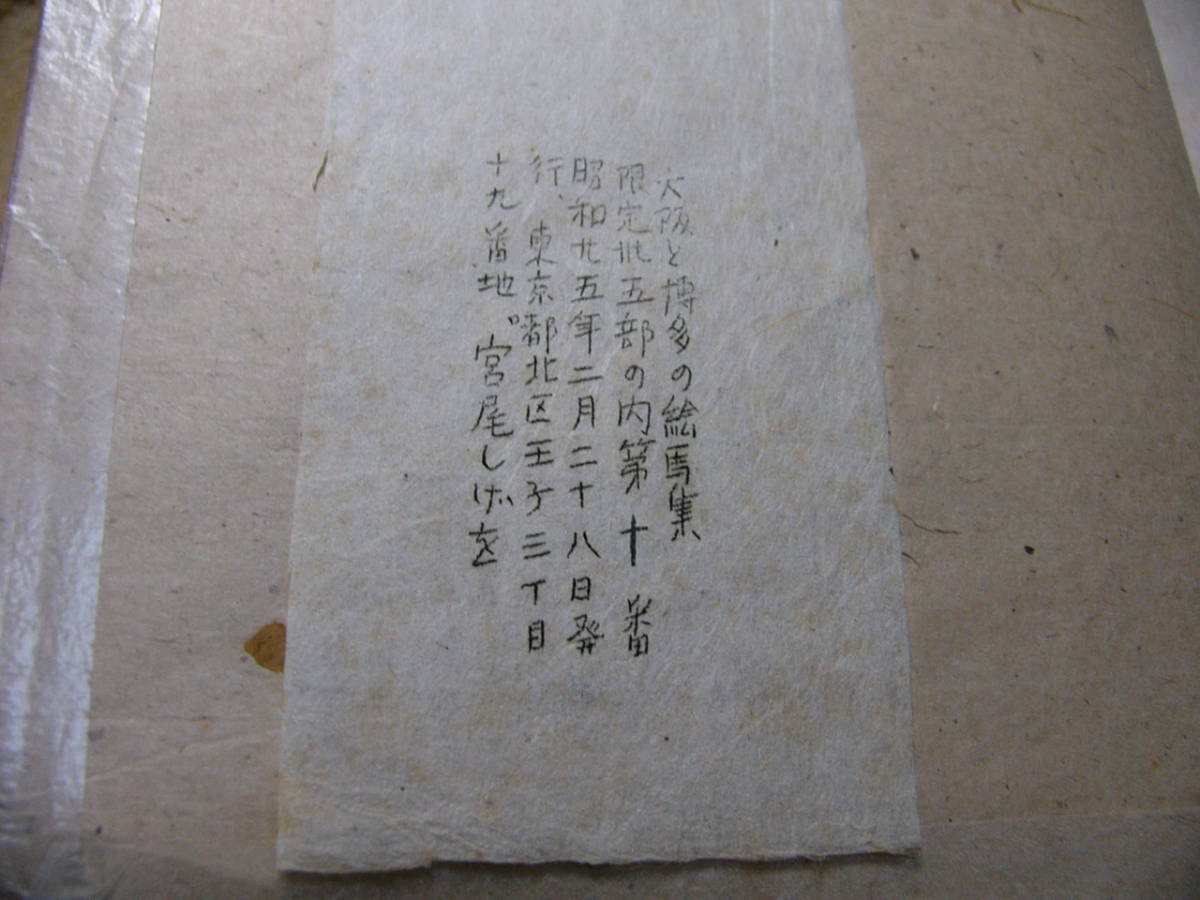 大阪と博多の絵馬集、
限定卅五部の内第十番
昭和廿五年二月二十八日発
行、東京都北区王子三丁目
十九番地。宮尾しげを